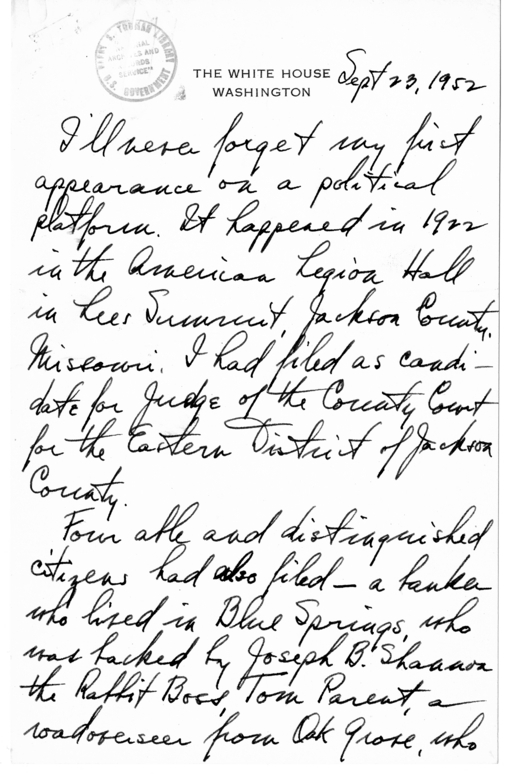 HARRY S. TRUMAN LIBRARY
ARCHIVES AND
SERVICE
U.S. GOVERNMENT
THE WHITE HOUSE
WASHINGTON
Sept 23, 1952
I'll never forget my first
appearance on a political
platform. It happened in 1922
in the American Legion Hall
in Lees Summit, Jackson County,
Missouri. I had filed as candi-
date for Judge of the County Court
for the Eastern District of Jackson
County.
Four able and distinguished
citizens had also filed – a banker
who lived in Blue Springs, who
was backed by Joseph B. Shannon
the Rabbit Boss, Tom Parent, a
roadoverseer from Oak Grove, who